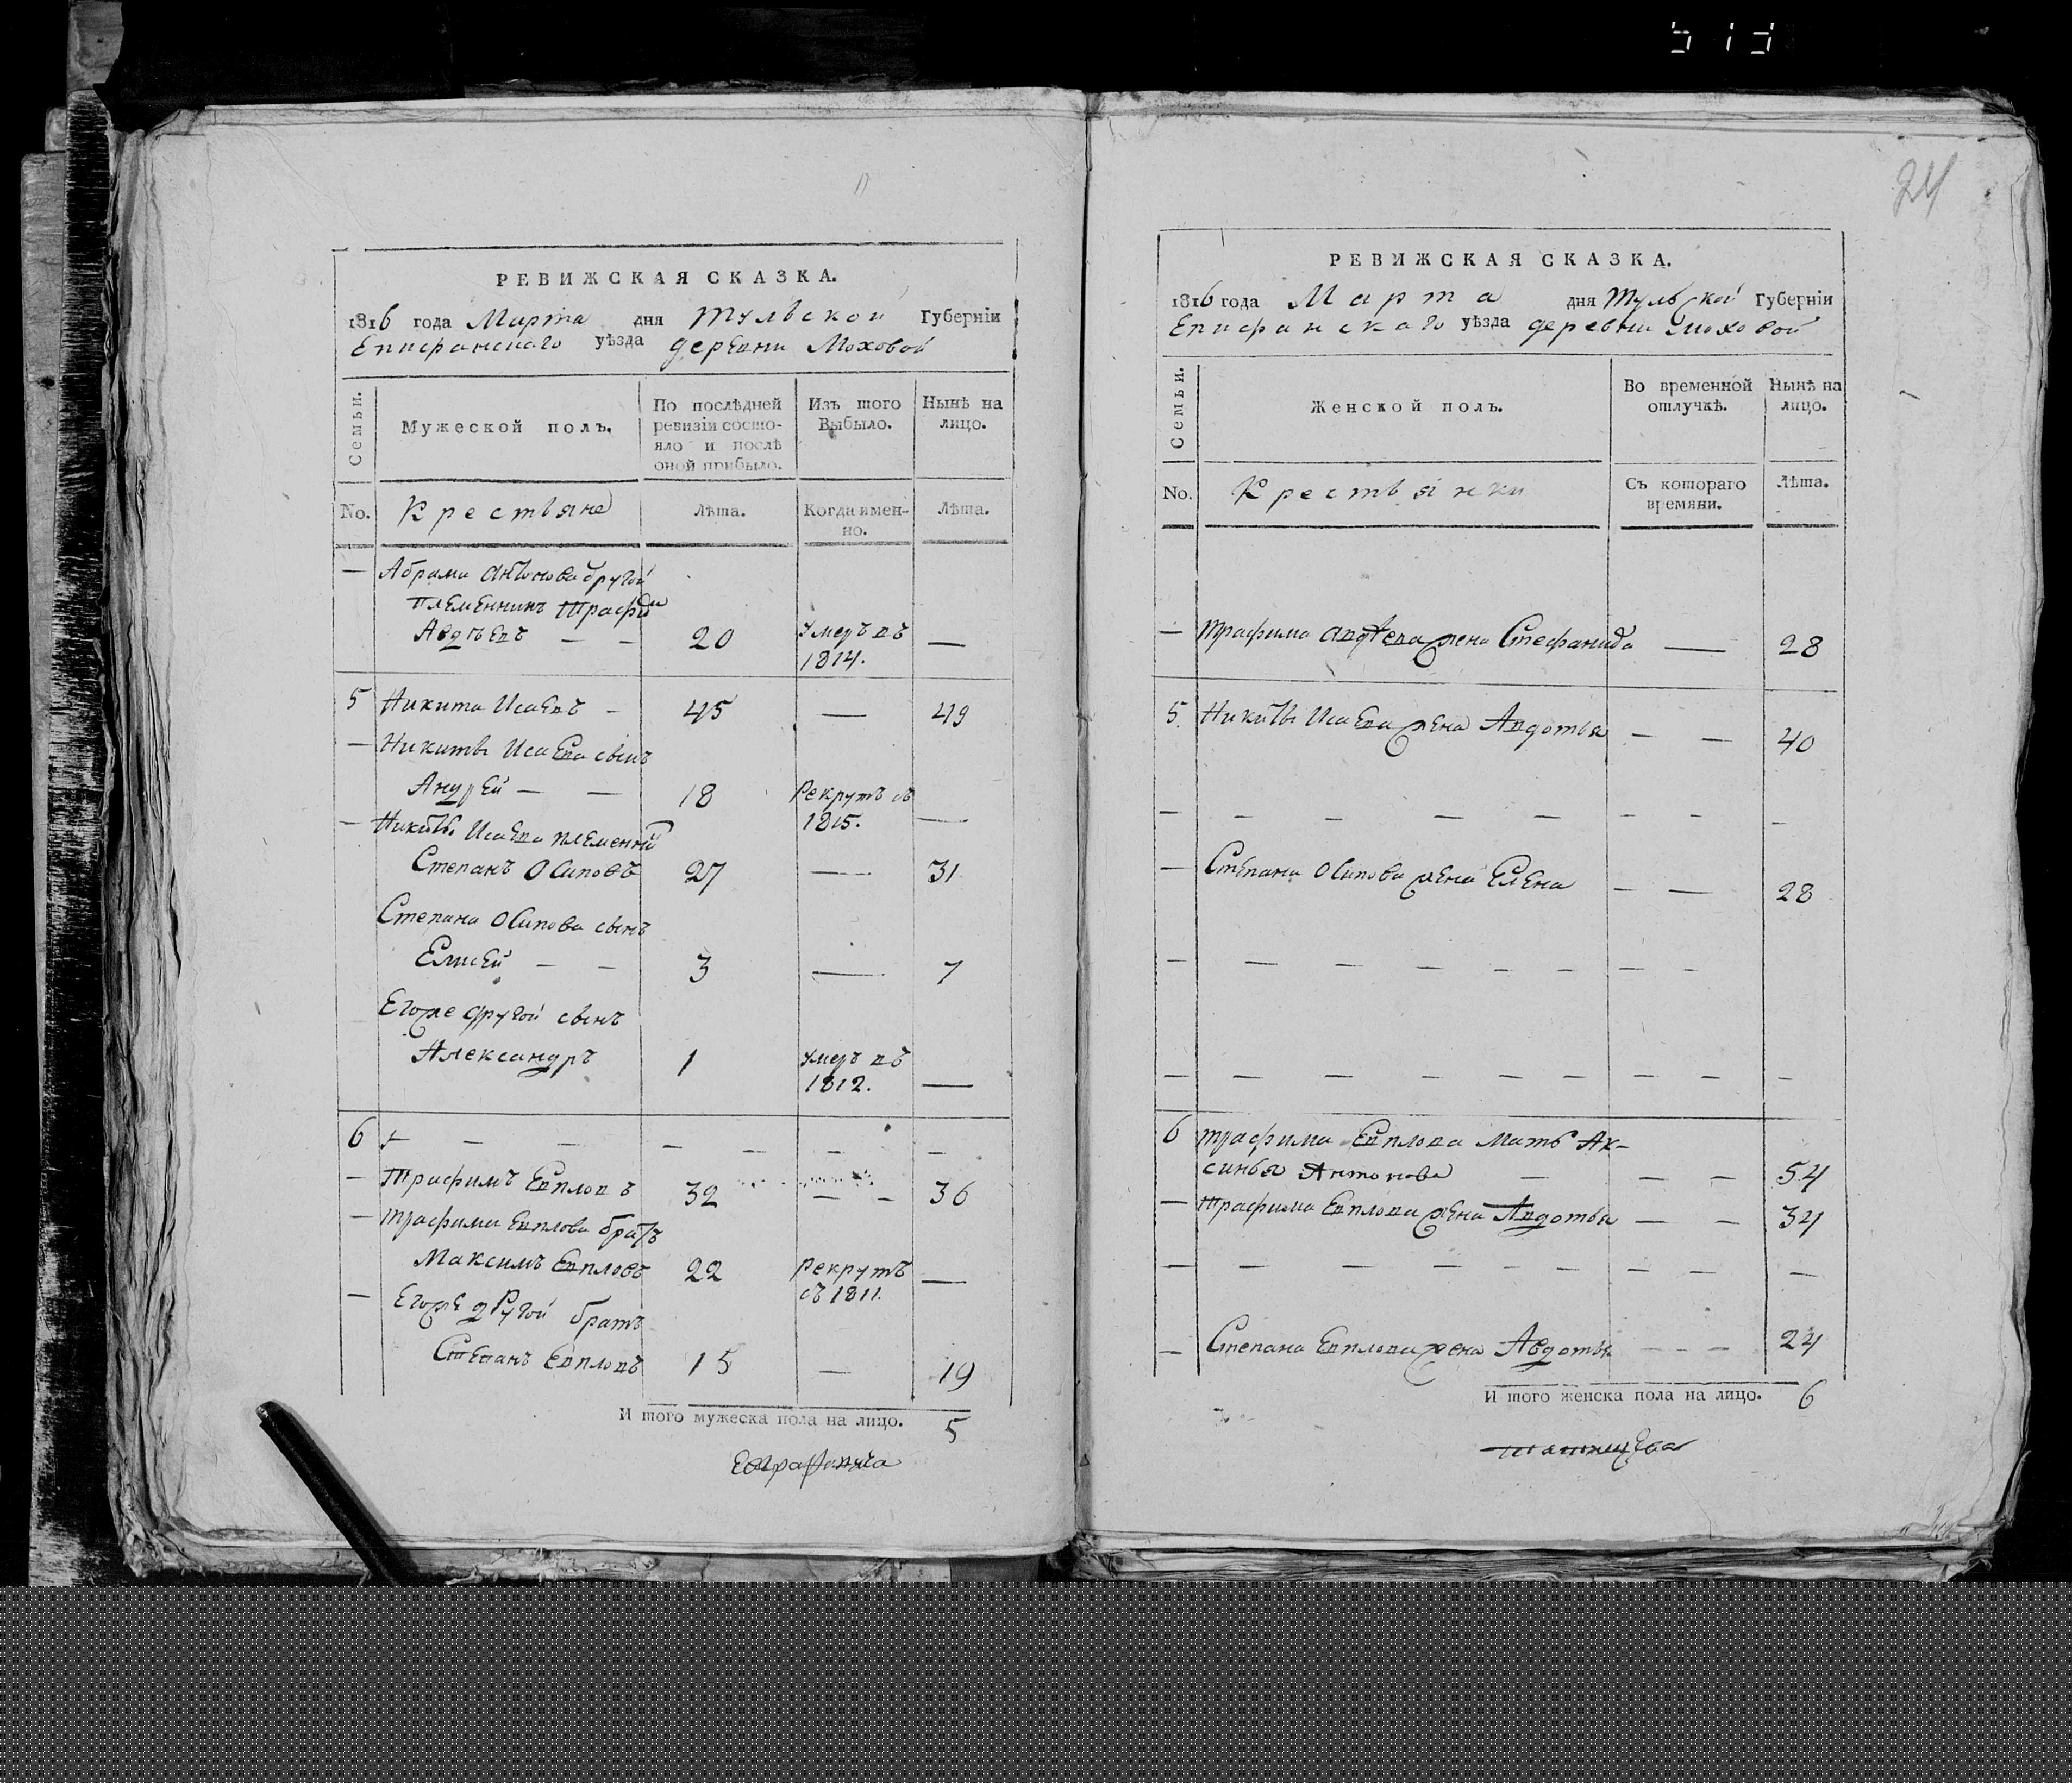 515
24
РЕВИЖСКАЯ СКАЗКА.
1816 года Марта дня Тульской Губерніи
Епифанскаго уѣзда деревни Моховой
Семьи.
Мужеской полъ.
По послѣдней ревизіи состо-
яло и послѣ
оной прибыло.
Изъ того
Выбыло.
Нынѣ на
лицо.
No.
Крестьяне
Лѣта.
Когда имен-
но.
Лѣта.
— Абрама Антонова другой
племенникъ Трафим
Авдѣевъ — — 20 умеръ въ —
1814.
5 Никита Исаевъ — 45 — 49
— Никиты Исаева сынъ
Андрей — — 18 Рекрутъ съ
1815. —
— Никиты Исаева племенни
Степанъ Осиповъ 27 — 31
Степана Осипова сынъ
Елисей — — 3 — 7
Егоже другой сынъ
Александръ 1 умеръ въ
1812. —
6 — — — — — — —
— Трафимъ Евпловъ 32 — — 36
— Трафима Евплова братъ
Максимъ Евпловъ 22 рекрутъ —
съ 1811.
— Егоже другой братъ
Степанъ Евпловъ 15 — 19
И того мужеска пола на лицо. 5
РЕВИЖСКАЯ СКАЗКА.
1816 года Марта дня Тульской Губерніи
Епифанскаго уѣзда деревни Моховой
Семьи.
Женской полъ.
Во временной
отлучкѣ.
Нынѣ на
лицо.
No.
Крестьянки
Съ котораго
времяни.
Лѣта.
— Трафима Авдѣева жена Стефанида — 28
5. Никиты Исаева жена Авдотья — — 40
— — — — — — — —
— Степана Осипова жена Елена — — 28
— — — — — — — —
— — — — — — — — —
6 Трафима Евплова мать Ак-
синья Антонова — — — 54
— Трафима Евплова жена Авдотья — — 34
— — — — — — — — —
— Степана Евплова жена Авдотья — — — 24
И того женска пола на лицо. 6